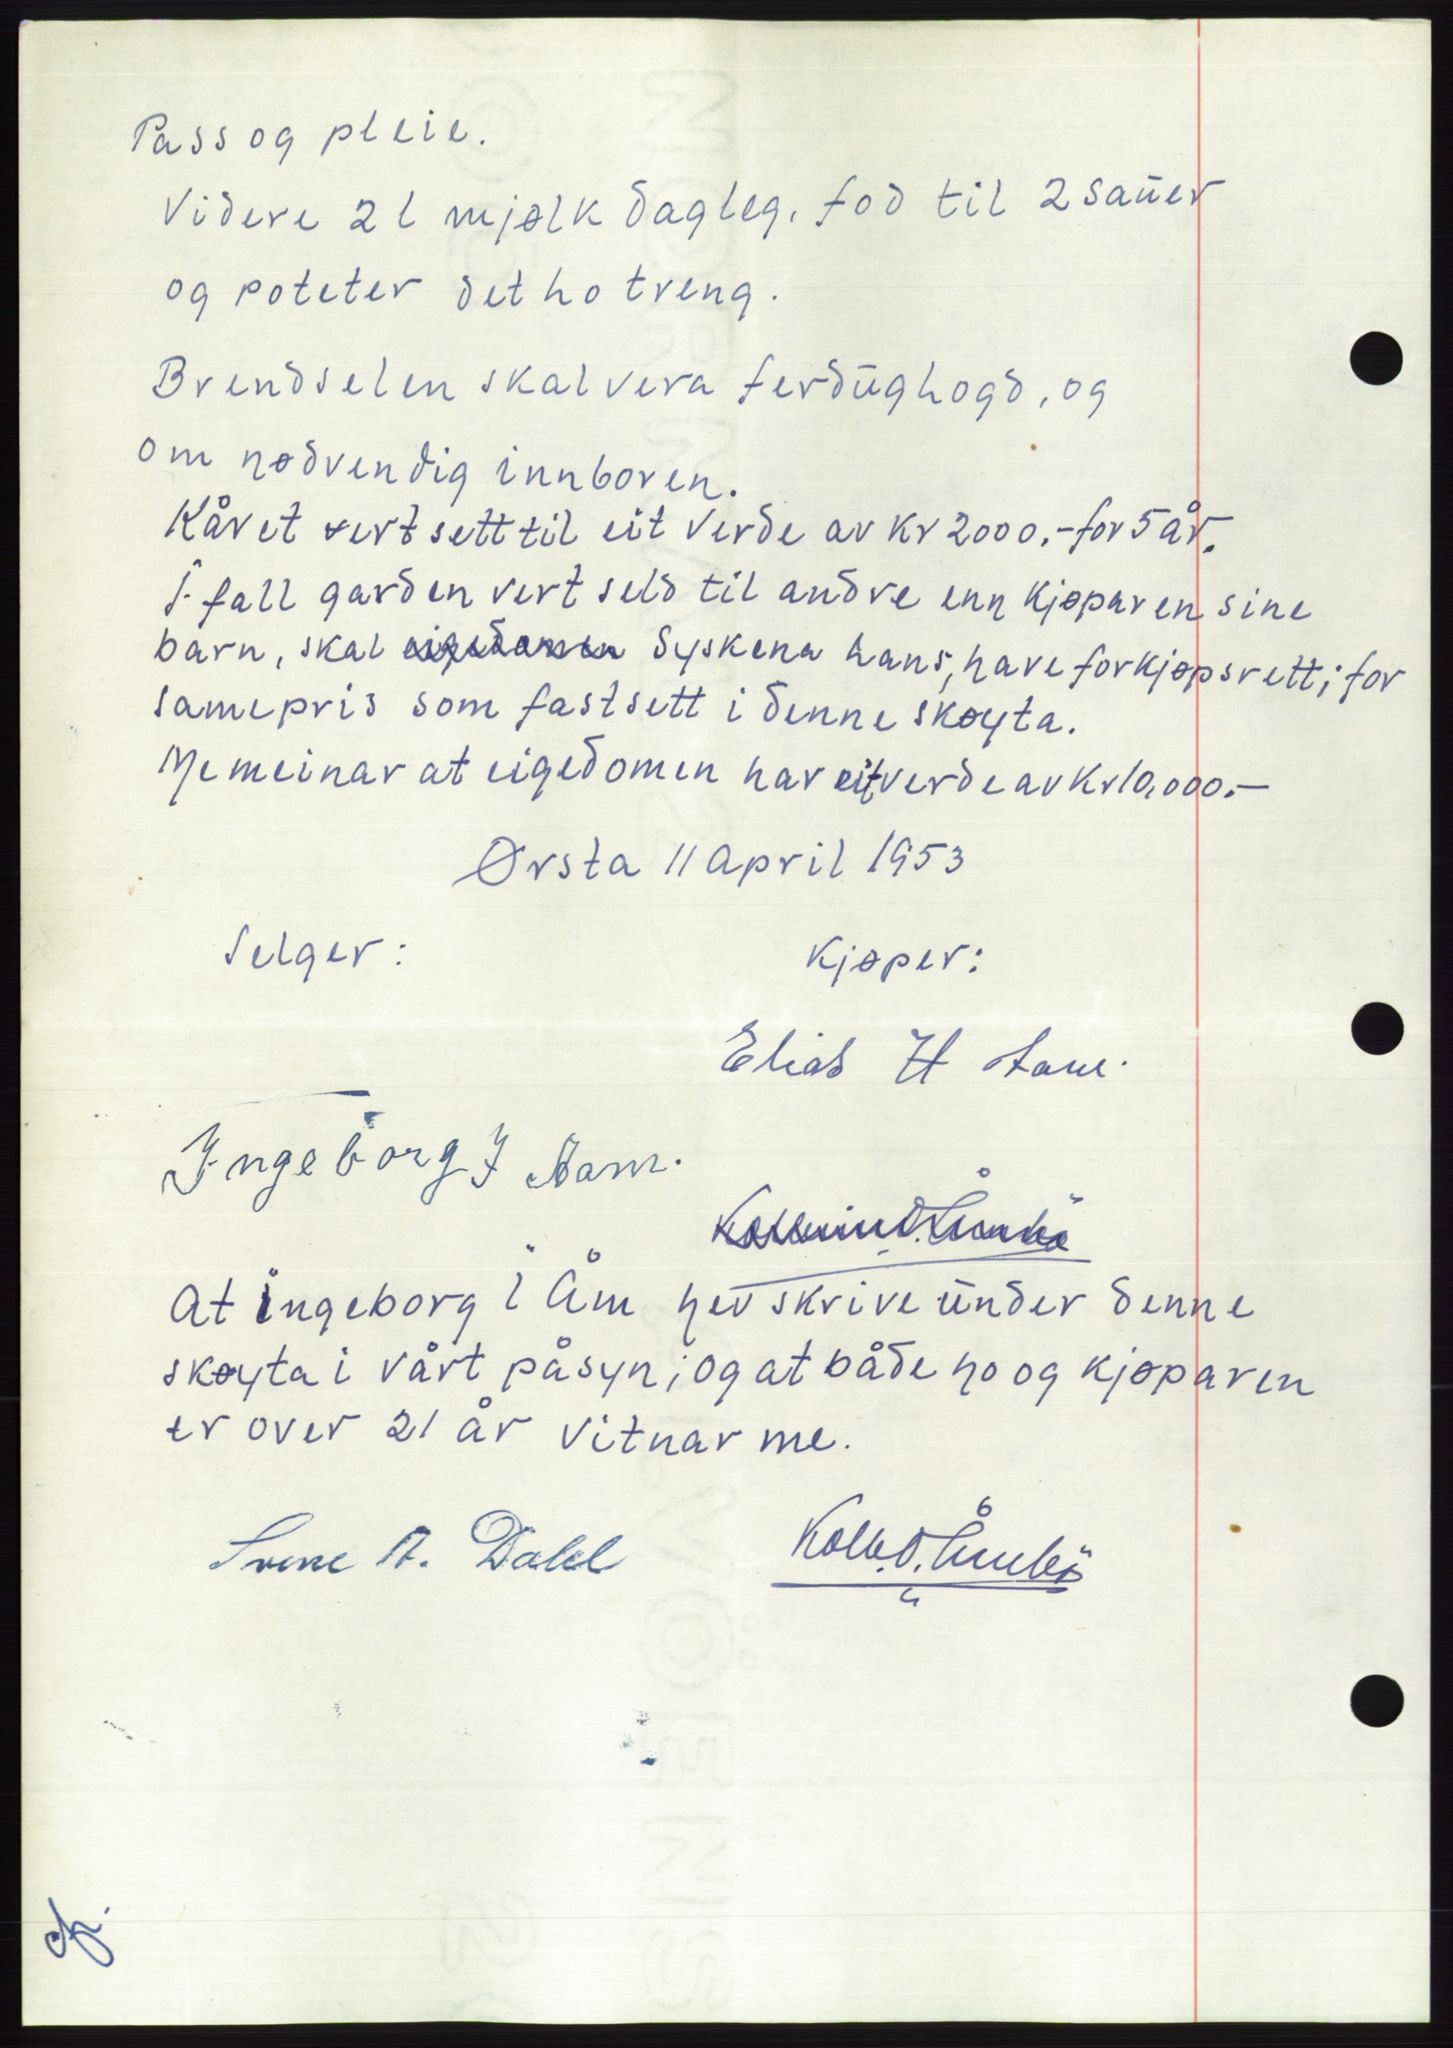 Pass og pleie.
Videre 2 l mjølk dagleg, fod til 2 sauer
og poteter det ho treng.
Brendselen skal vera ferdughogd, og
om nødvendig innboren.
Kåret vert sett til eit verde av Kr 2000.- for 5 år.
I fall garden vert seld til andre enn kjøparen sine
barn, skal eigedomen syskena hans, have forkjøpsrett; for
same pris som fastsett i denne skøyta.
Me meinar at eigedomen har eit verde av Kr 10,000.-
Ørsta 11 april 1953
Selger:
Kjøper:
Elias H Aam.
Ingeborg I Aam.
At Ingeborg I Åm hev skrive under denne
skøyta i vårt påsyn; og at både ho og kjøparen
er over 21 år vitnar me.
A. Dahl
Kolb. O.